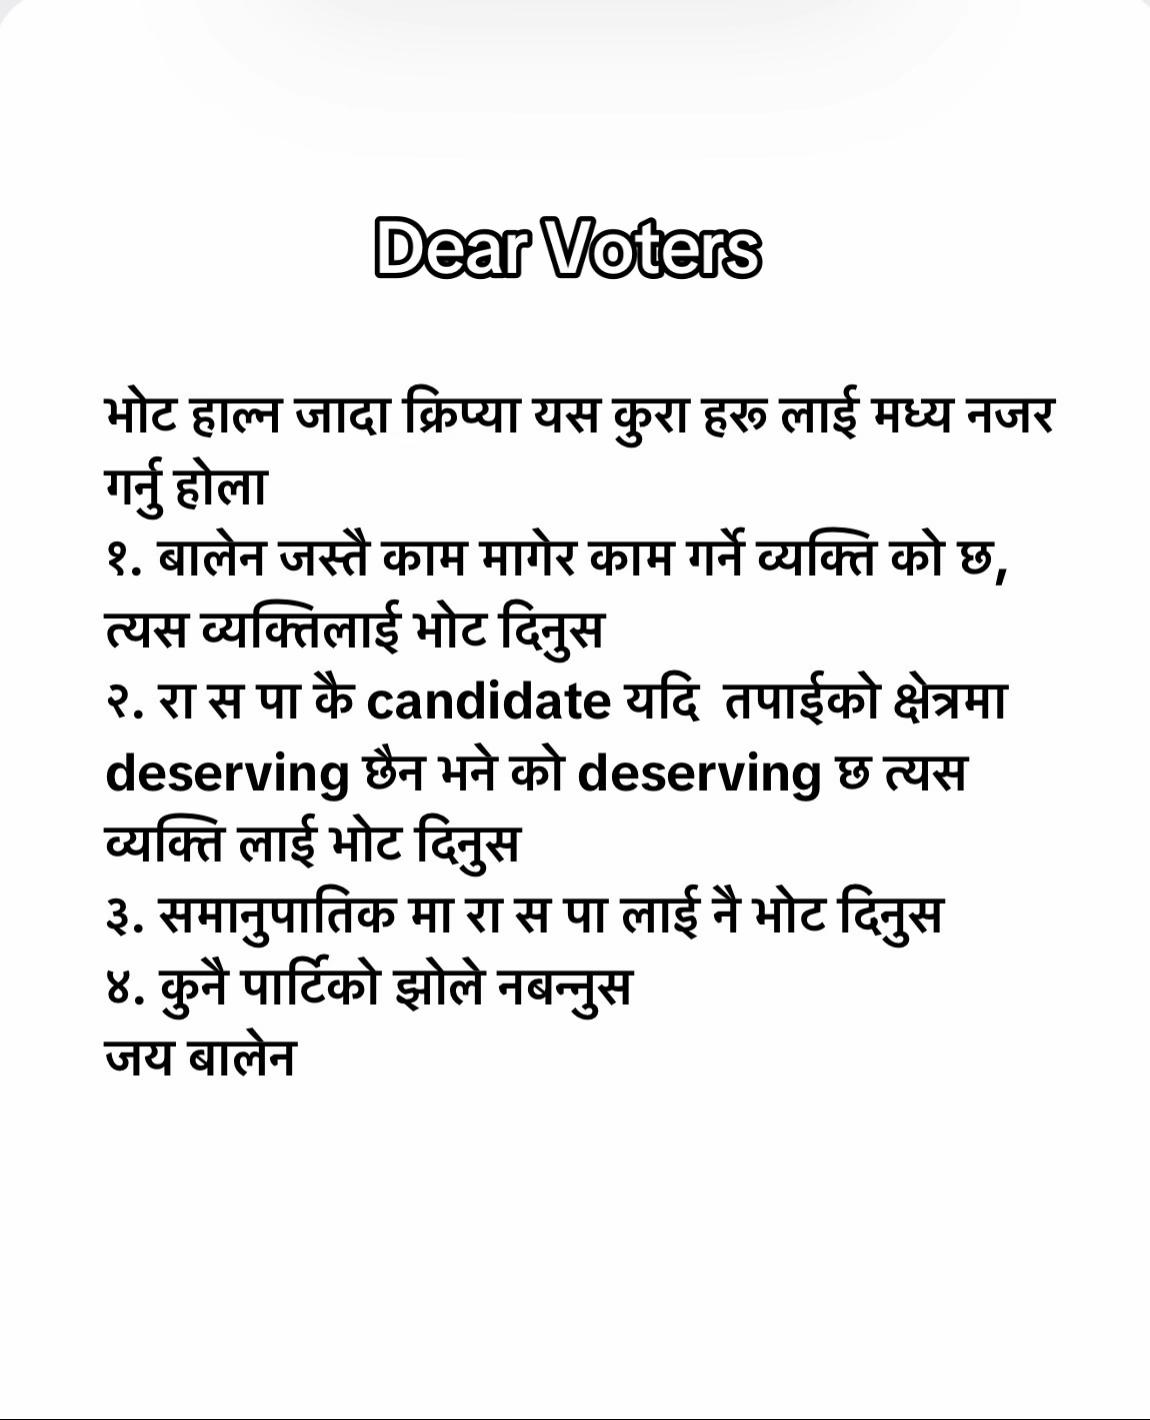 Dear Voters
भोट हाल्न जादा क्रिप्या यस कुरा हरू लाई मध्य नजर
गर्नु होला
१. बालेन जस्तै काम मागेर काम गर्ने व्यक्ति को छ,
त्यस व्यक्तिलाई भोट दिनुस
२. रा स पा कै candidate यदि  तपाईको क्षेत्रमा
deserving छैन भने को deserving छ त्यस
व्यक्ति लाई भोट दिनुस
३. समानुपातिक मा रा स पा लाई नै भोट दिनुस
४. कुनै पार्टिको झोले नबन्नुस
जय बालेन